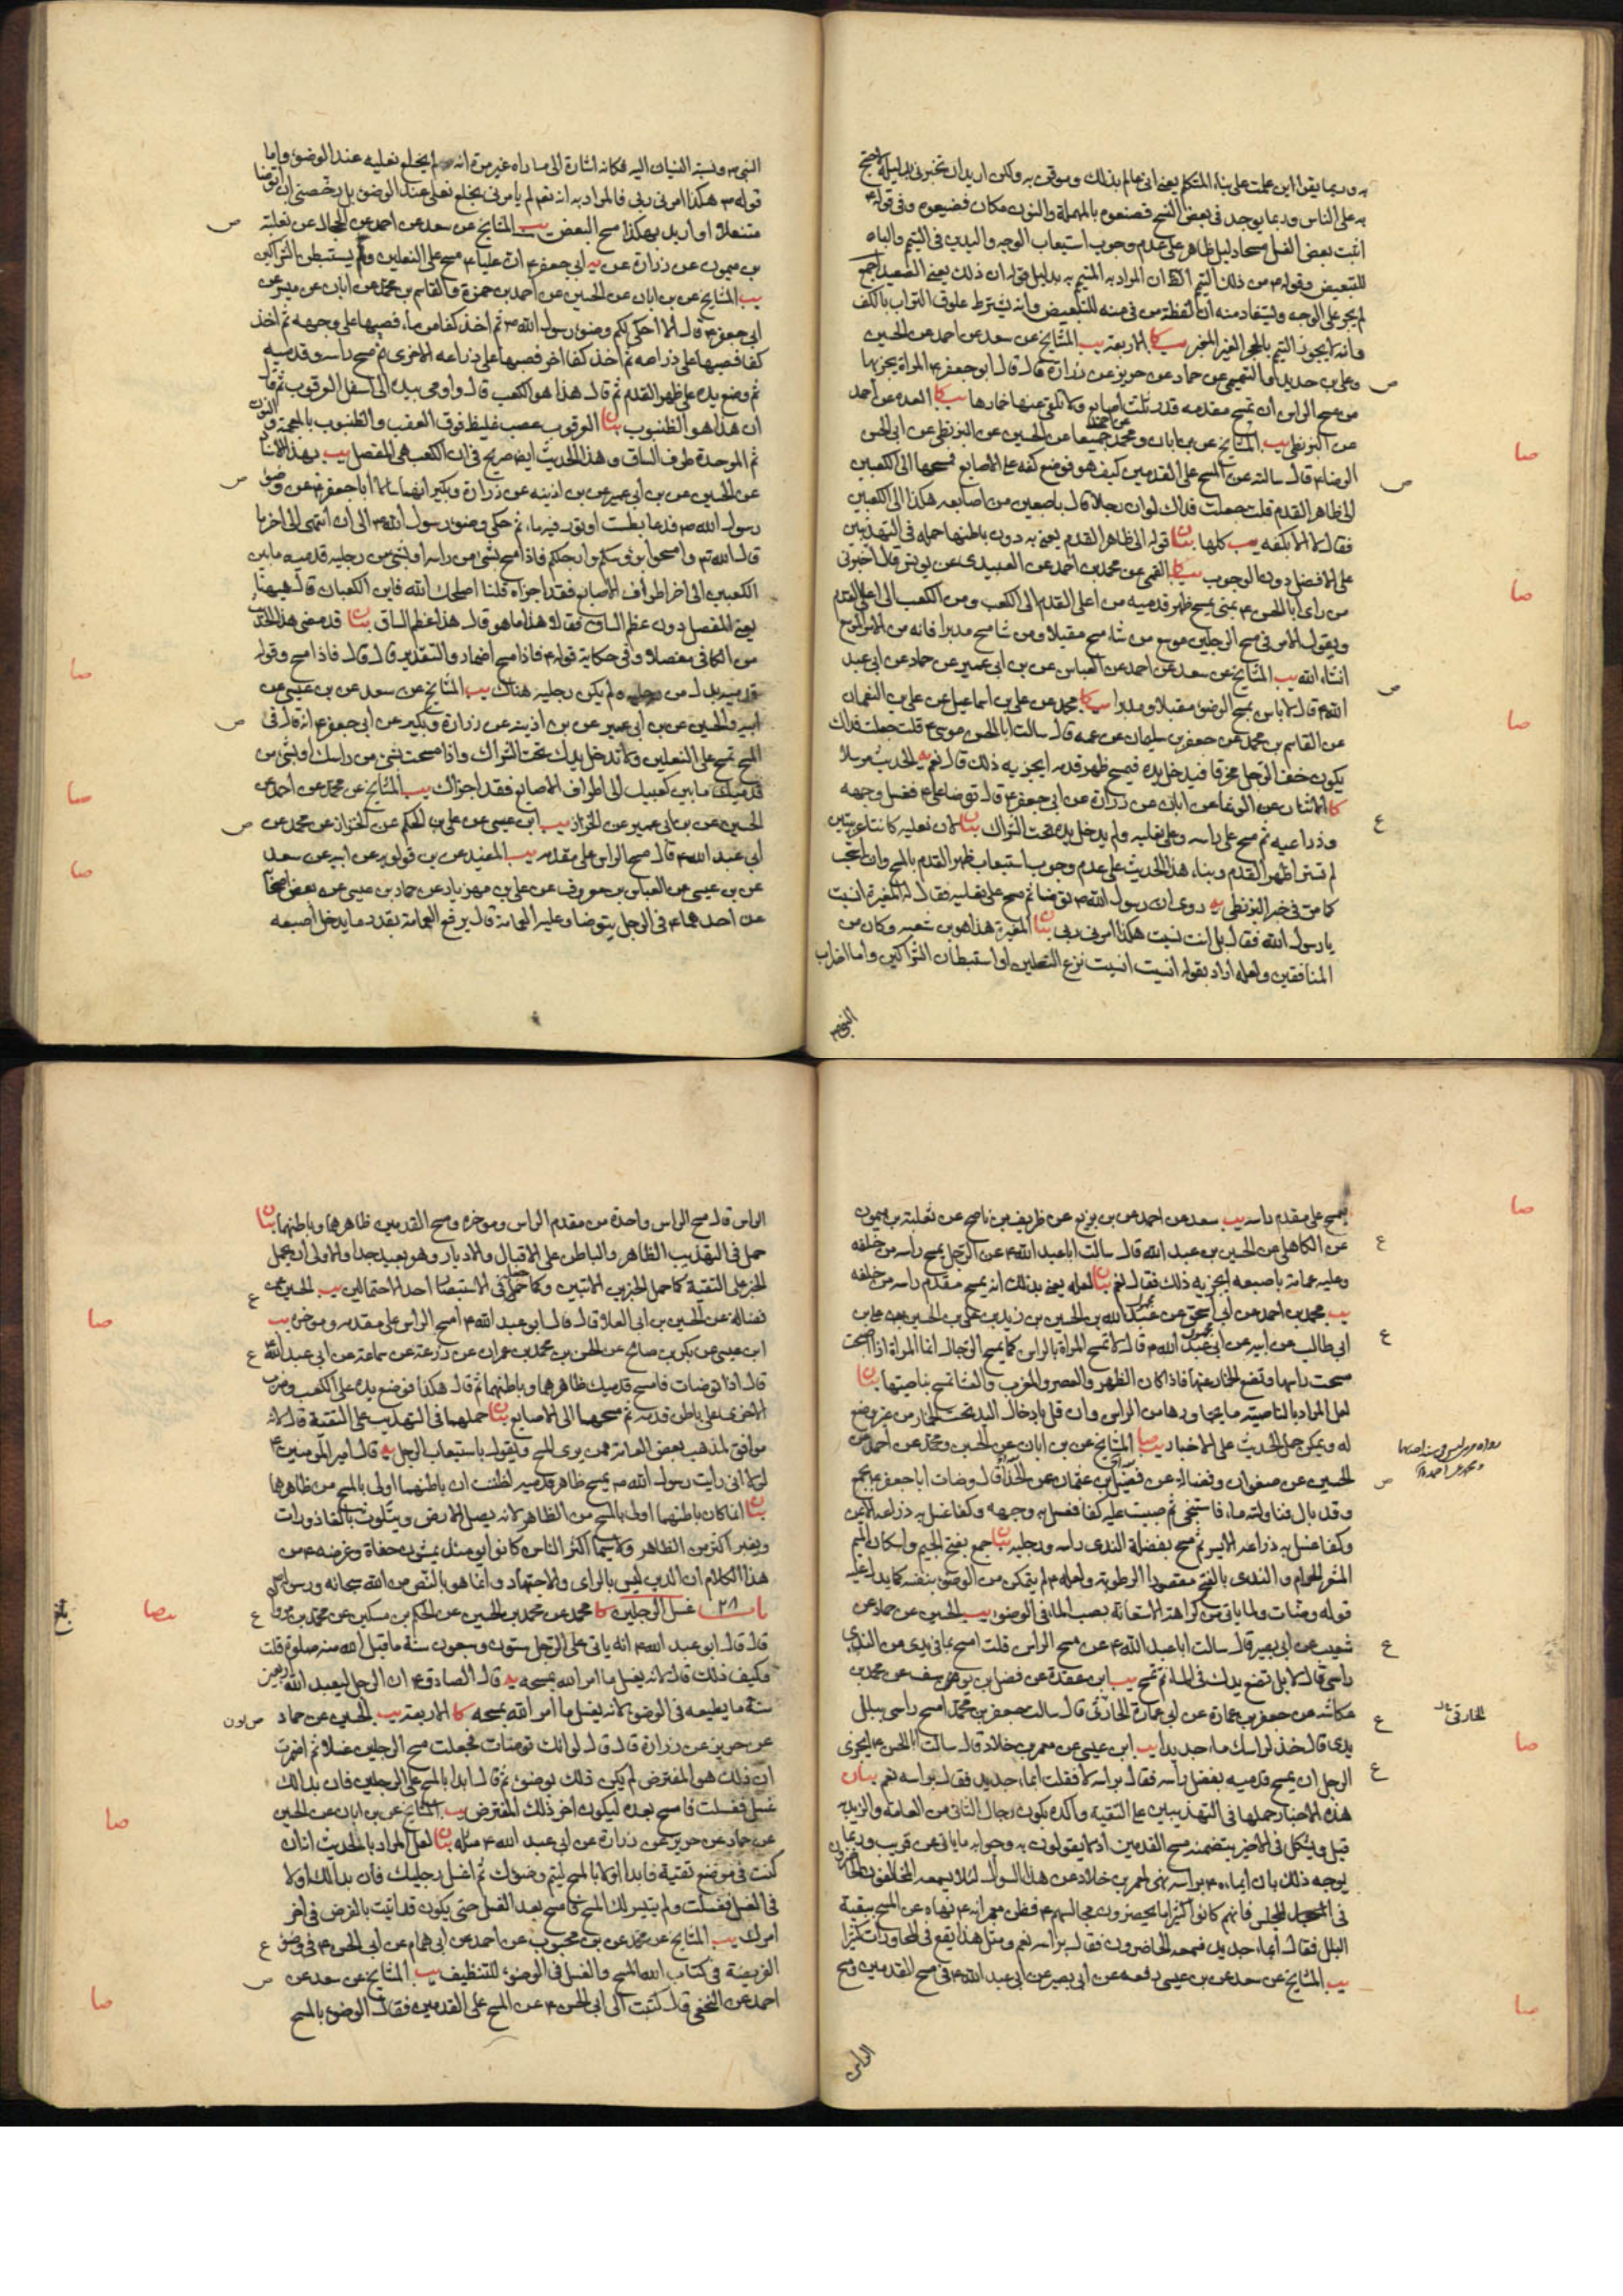 به وربما يقرا اين علمت على بناء المتكلم يعنى انى عالم بذلك وموقن به ولكن اريد ان تخبرنى بدليله لاحتج
به على الناس وربما يوجد فى بعض النسخ فصنعوه بالمهملة والنون مكان فضيعوه وفى قوله ع
اثبت بعض الغسل مسحا دليل ظاهر على عدم وجوب استيعاب الوجه واليدين فى التيمم والباء
للتبعيض وقوله ع من ذلك التيمم الظ ان المراد به المتيمم به بدليل قوله ان ذلك يعنى الصعيد اجمع
لم يجر على الوجه وليستفاد منه ان لفظة من فى منه للتبعيض وانه يشترط علوق التراب بالكف
وانه لا يجوز التيمم بالحجر الغير المغبر كا الاربعة يب المشايخ عن سعد عن احمد عن الحسين
وعلى بن حديد والتميمى عن حماد عن حريز عن زرارة قال قال ابو جعفر ع المراة يجزيها
من مسح الراس ان تمسح مقدمه قدر ثلث اصابع ولا تلقى عنها خمارها كا العدة عن احمد
عن البزنطى يب المشايخ عن بن ابان ومحمد جميعا عن الحسين عن البزنطى عن ابى الحسن
الرضا ع قال سالته عن المسح على القدمين كيف هو فوضع كفه على الاصابع فمسحها الى الكعبين
الى ظاهر القدم قلت جعلت فداك لو ان رجلا قال باصبعين من اصابعه هكذا الى الكعبين
فقال لا الا بكفه يب كلها بيان قوله الى ظاهر القدم يعنى به دون باطنها حمله فى التهذيبين
على الافضل دون الوجوب كا القمى عن محمد بن احمد عن العبيدى عن يونس قال اخبرنى
من راى ابا الحسن ع بمنى يمسح ظهر قدميه من اعلى القدم الى الكعب ومن الكعب الى اعلى القدم
ويقول الامر فى مسح الرجلين موسع من شاء مسح مقبلا ومن شاء مسح مدبرا فانه من الامر الموسع
انشاء الله يب المشايخ عن سعد عن احمد عن العباس عن بن ابى عمير عن حماد عن ابى عبد
الله ع قال لا باس بمسح الوضوء مقبلا ومدبرا كا محمد عن على بن اسماعيل عن على بن النعمان
عن القاسم بن محمد عن جعفر بن سليمان عن عمه قال سالت ابا الحسن موسى ع قلت جعلت فداك
يكون خف الرجل مخرقا فيدخل يده فيمسح ظهر قدمه ايجزيه ذلك قال نعم يه الحديث مرسلا
كا الاثنان عن الوشا عن ابان عن زرارة عن ابى جعفر ع قال توضا على ع فغسل وجهه
وذراعيه ثم مسح على راسه وعلى نعليه ولم يدخل يده تحت الشراك بيان لان نعليه كانتا عربيتين
لم تسترا ظهر القدم وبناء هذا الحديث على عدم وجوب استيعاب ظهر القدم بالمسح وان استحب
كما مر فى خبر البزنطى يه روى ان رسول الله ص توضا ثم مسح على نعليه فقال له المغيرة انسيت
يا رسول الله فقال بل انت نسيت هكذا امرنى ربى بيان المغيرة هذا هو بن شعبه وكان من
المنافقين ولعله اراد بقوله انسيت انسيت نزع النعلين او استبطان الشراكين واما اضراب
النبى ص
صا
صا
صا
النبى ص ونسبة النسيان اليه فكانه اشارة الى ما راه غير مرة انه لم يخلع نعليه عند الوضوء واما
قوله ص هكذا امرنى ربى فالمراد به انه نعم لم يامرنى بخلع نعلى عند الوضوء بل رخصنى ان اتوضا
متنعلا او اريد به هكذا مسح البعض يب المشايخ عن سعد عن احمد عن الحجال عن ثعلبة
بن ميمون عن زرارة عن يه ابى جعفر ع ان عليا ع مسح على النعلين ولم يستبطن الشراكين
يب المشايخ عن بن ابان عن الحسين عن احمد بن حمزة والقاسم بن محمد عن ابان عن ميسر عن
ابى جعفر ع قال الا احكى لكم وضوء رسول الله ص ثم اخذ كفا من ماء فصبها على وجهه ثم اخذ
كفا فصبها على ذراعه ثم اخذ كفا اخر فصبها على ذراعه الاخرى ثم مسح راسه وقدميه
ثم وضع يده على ظهر القدم ثم قال هذا هو الكعب قال واومى بيده الى اسفل العرقوب ثم قال
ان هذا هو الظنبوب بيان العرقوب عصب غليظ فوق العقب والظنبوب بالمعجمة والنون
ثم الموحدة طرف الساق وهذا الحديث ايضا صريح فى ان الكعب هى المفصل يب بهذا الاسناد
عن الحسين عن بن ابى عمير عن بن اذينه عن زرارة وبكير انهما سالا ابا جعفر ع عن وضوء
رسول الله ص فدعا بطست او تور فيه ماء ثم حكى وضوء رسول الله ص الى ان انتهى الى اخر ما
قال الله تع وامسحوا برؤسكم وارجلكم فاذا مسح بشئ من راسه او بشئ من رجليه قدميه ما بين
الكعبين الى اخر اطراف الاصابع فقد اجزاه قلنا اصلحك الله فاين الكعبان قال هيهنا
يعنى المفصل دون عظم الساق فقال هذا ما هو قال هذا عظم الساق بيان قد مضى هذا الحديث
من الكافى مفصلا وفى حكاية قوله ع فاذا مسح اضمار والتقدير قال قال فاذا مسح وقوله
قدميه بدل من رجليه ولم يكن رجليه هناك يب المشايخ عن سعد عن بن عيسى عن
ابيه والحسين عن بن ابى عمير عن بن اذينه عن زرارة وبكير عن ابى جعفر ع انه قال فى
المسح تمسح على النعلين ولا تدخل يدك تحت الشراك واذا مسحت بشئ من راسك او بشئ من
قدميك ما بين كعبيك الى اطراف الاصابع فقد اجزاك يب المشايخ عن محمد عن احمد عن
الحسين عن بن ابى عمير عن الخزاز يب ابن عيسى عن على بن الحكم عن الخزاز عن محمد عن
ابى عبد الله ع قال مسح الراس على مقدمه يب المفيد عن بن قولويه عن ابيه عن سعد
عن بن عيسى عن العباس بن معروف عن على بن مهزيار عن حماد بن عيسى عن بعض اصحابنا
عن احدهما ع فى الرجل يتوضا وعليه العمامة قال يرفع العمامة بقدر ما يدخل اصبعه
صا
صا
صا
فيمسح على مقدم راسه يب سعد عن احمد عن بن بزيع عن ظريف بن ناصح عن ثعلبة بن ميمون
عن الكاهلى عن الحسين بن عبد الله قال سالت ابا عبد الله ع عن الرجل يمسح راسه من خلفه
وعليه عمامة باصبعه ايجزيه ذلك فقال نعم بيان لعله يعنى بذلك انه يمسح مقدم راسه من خلفه
يب محمد بن احمد عن ابى اسحق عن عبد الله بن الحسين بن زيد بن على بن الحسين بن على بن
ابى طالب عن ابيه عن ابى عبد الله ع قال لا تمسح المراة بالراس كما يمسح الرجال انما المراة اذا اصبحت
مسحت راسها وتضع الخمار عنها فاذا كان الظهر والعصر والمغرب والعشا تمسح بناصيتها بيان
لعل المراد بالناصية ما يحاورها من الراس وان قل بادخال اليد تحت الخمار من غير وضع
له ويمكن حمل الحديث على الاخبار يب المشايخ عن بن ابان عن الحسين ومحمد عن احمد عن
الحسين عن صفوان وفضالة عن فضيل بن عثمان عن الحذا قال وضات ابا جعفر ع بجمع
وقد بال فناولته ماء فاستنجى ثم صببت عليه كفا فغسل به وجهه وكفا غسل به ذراعه الايمن
وكفا غسل به ذراعه الايسر ثم مسح بفضلة الندى راسه ورجليه بيان جمع بفتح الجيم واسكان الميم
المشعر الحرام والندى بالفتح مقصورا الرطوبة ولعله ع لم يتمكن من الوضوء بنفسه كما يدل عليه
قوله وضات ولما ياتى من كراهة الاستعانة بصب الماء فى الوضوء يب الحسين عن حماد عن
شعيب عن ابى بصير قال سالت ابا عبد الله ع عن مسح الراس قلت امسح بما فى يدى من الندى
راسى قال لا بل تضع يدك فى الماء ثم تمسح يب ابن عقدة عن فضل بن يوسف عن محمد بن
عكاشة عن جعفر بن عمارة عن ابى عمارة الحارثى قال سالت جعفر بن محمد ع امسح راسى ببلل
يدى قال خذ لراسك ماء جديدا يب ابن عيسى عن معمر بن خلاد قال سالت ابا الحسن ع ايجزى
الرجل ان يمسح قدميه بفضل راسه فقال براسه لا فقلت ابماء جديد فقال براسه نعم بيان
هذه الاخبار حملها فى التهذيبين على التقية واكده بكون رجال الثانى من العامة والزيدية
قيل ويشكل فى الاخير بتضمنه مسح القدمين اذ ما يقولون به وجوابه ما ياتى عن قريب وربما
يوجه ذلك بان ايماءه ع براسه نهى لمعمر بن خلاد عن هذا السوال لئلا يسمعه المخالفون الحاضرون
فى المجلس فانهم كانوا كثيرا ما يحضرون مجالسهم ع فظن معمر انه ع نهاه عن المسح ببقية
البلل فقال ابماء جديد فسمعه الحاضرون فقال براسه نعم ومثل هذا يقع فى المحاورات كثيرا
يب المشايخ عن سعد عن بن عيسى رفعه عن ابى بصير عن ابى عبد الله ع فى مسح القدمين ومسح
الراس
صا
الحارثى
صا
صا
الراس قال مسح الراس واحدة من مقدم الراس وموخره ومسح القدمين ظاهرهما وباطنهما بيان
حمل فى التهذيب الظاهر والباطن على الاقبال والادبار وهو بعيد جدا والاولى ان يحمل
الخبر على التقية كما حمل الخبرين الاتيين وكما حمله فى الاستبصار احد الاحتمالين يب الحسين عن
فضالة عن الحسين بن ابى العلا قال قال ابو عبد الله ع امسح الراس على مقدمه وموخره يب
ابن عيسى عن بكر بن صالح عن الحسن بن محمد بن عمران عن زرعة عن سماعة عن ابى عبد الله ع
قال اذا توضات فامسح قدميك ظاهرهما وباطنهما ثم قال هكذا فوضع يده على الكعب وضرب
الاخرى على باطن قدمه ثم مسحهما الى الاصابع بيان حملهما فى التهذيب على التقية قال لانه
موافق لمذهب بعض العامة ممن يرى المسح ويقول باستيعاب الرجل يه قال امير المؤمنين ع
لولا انى رايت رسول الله ص يمسح ظاهر قدميه لظننت ان باطنهما اولى بالمسح من ظاهرهما
بيان انما كان باطنهما اولى بالمسح من الظاهر لانه يصل الارض ويتلوث بالقاذورات
ويغبر اكثر من الظاهر ولا سيما اكثر الناس كانوا يومئذ يمشون حفاة وغرضه ع من
هذا الكلام ان الدين ليس بالراى والاجتهاد وانما هو بالنص من الله سبحانه ورسوله
باب ٢٨ غسل الرجلين كا محمد عن محمد بن الحسين عن الحكم بن مسكين عن محمد بن مروان
قال قال ابو عبد الله ع انه ياتى على الرجل ستون وسبعون سنة ما قبل الله منه صلوة قلت
وكيف ذلك قال لانه يغسل ما امر الله بمسحه يه قال الصادق ع ان الرجل ليعبد الله اربعين
سنة ما يطيعه فى الوضوء لانه يغسل ما امر الله بمسحه كا الاربعة يب الحسين عن حماد
عن حريز عن زرارة قال قال لو انك توضات فجعلت مسح الرجلين غسلا ثم اضمرت
ان ذلك هو المفترض لم يكن ذلك بوضوء ثم قال ابدا بالمسح على الرجلين فان بدا لك
غسل فغسلت فامسح بعده ليكون اخر ذلك المفترض يب المشايخ عن بن ابان عن الحسين
عن حماد عن حريز عن زرارة عن ابى عبد الله ع مثله بيان لعل المراد بالحديث ان ان
كنت فى موضع تقية فابدا اولا بالمسح ليتم وضوءك ثم اغسل رجليك فان بدا لك اولا
فى الغسل فغسلت ولم يتيسر لك المسح فامسح بعد الغسل حتى يكون قد اتيت بالفرض فى اخر
امرك يب المشايخ عن محمد عن بن محبوب عن احمد عن ابى همام عن ابى الحسن ع فى وضوء
الفريضة فى كتاب الله المسح والغسل فى الوضوء للتنظيف يب المشايخ عن سعد عن
احمد عن النخعى قال كتبت الى ابى الحسن ع عن المسح على القدمين فقال الوضوء بالمسح
صا
صا
صا